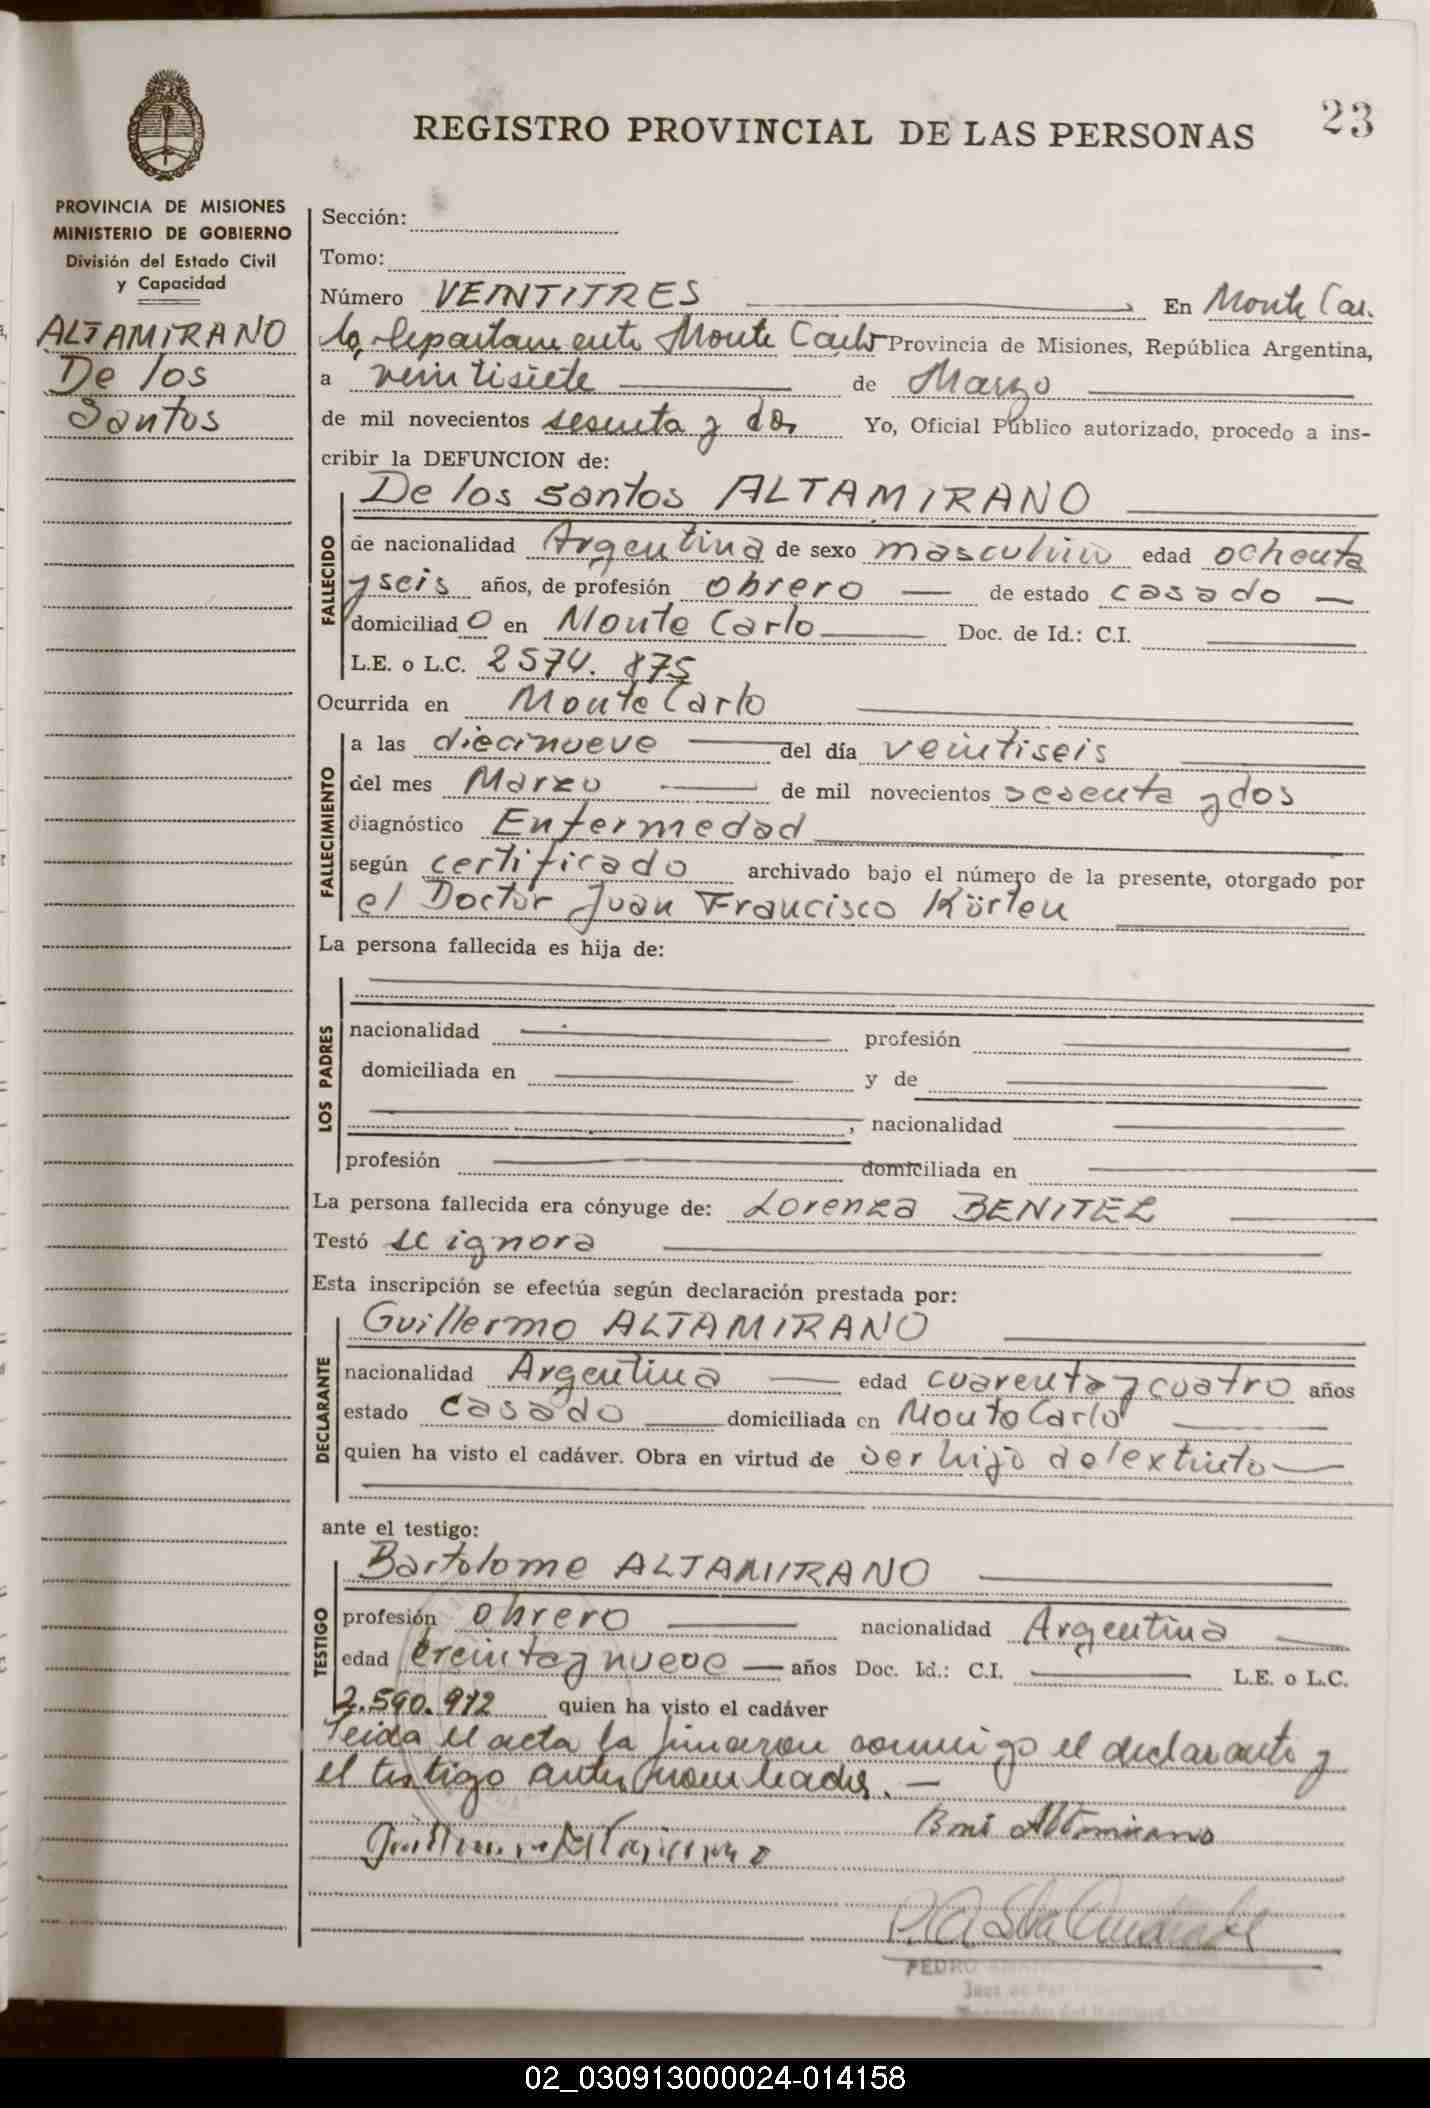 23
REGISTRO PROVINCIAL DE LAS PERSONAS
PROVINCIA DE MISIONES
MINISTERIO DE GOBIERNO
División del Estado Civil
y Capacidad
ALTAMIRANO
De los
Santos
Sección:
Tomo:
Número VEINTITRES En Monte Car.
lo, departamento Monte Carlo Provincia de Misiones, República Argentina,
a veintisiete de Marzo
de mil novecientos sesenta y dos Yo, Oficial Público autorizado, procedo a ins-
cribir la DEFUNCION de:
FALLECIDO
De los santos ALTAMIRANO
de nacionalidad Argentina de sexo masculino edad ochenta
y seis años, de profesión obrero de estado casado
domiciliado en Monte Carlo Doc. de Id.: C.I.
L.E. o L.C. 2574.875
Ocurrida en Monte Carlo
FALLECIMIENTO
a las diecinueve del día veintiseis
del mes Marzo de mil novecientos sesenta y dos
diagnóstico Enfermedad
según certificado archivado bajo el número de la presente, otorgado por
el Doctor Juan Francisco Körten
La persona fallecida es hija de:
LOS PADRES
nacionalidad profesión
domiciliada en y de
, nacionalidad
profesión domiciliada en
La persona fallecida era cónyuge de: Lorenza BENITEZ
Testó se ignora
Esta inscripción se efectúa según declaración prestada por:
DECLARANTE
Guillermo ALTAMIRANO
nacionalidad Argentina edad cuarenta y cuatro años
estado casado domiciliada en Monte Carlo
quien ha visto el cadáver. Obra en virtud de ser hijo del extinto
ante el testigo:
TESTIGO
Bartolome ALTAMIRANO
profesión obrero nacionalidad Argentina
edad treinta y nueve años Doc. Id.: C.I. L.E. o L.C.
2.590.972 quien ha visto el cadáver
Leida el acta la firmaron conmigo el declarante y
el testigo antes nombrados.
Bmé Altamirano
Guillermo Altamirano
PEDRO
02_030913000024-014158